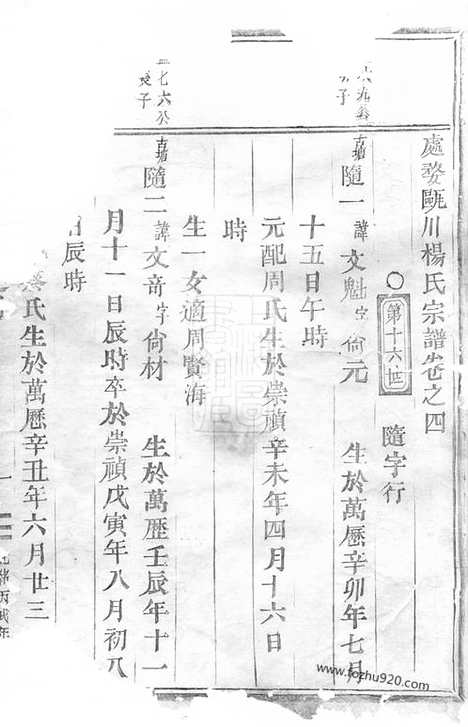 處婺甌川楊氏宗譜卷之四
第十六世 隨字行
隨一 諱文魁字尙元 生於萬曆辛卯年七月
十五日午時
元配周氏生於崇禎辛未年四月十六日
時
生一女適周賢海
七六公
長子
隨二 諱文奇字尙材 生於萬歷壬辰年十一
月十一日辰時卒於崇禎戊寅年八月初八
日辰時
氏生於萬歷辛丑年六月廿三
丙戌年
www.fozhu920.com